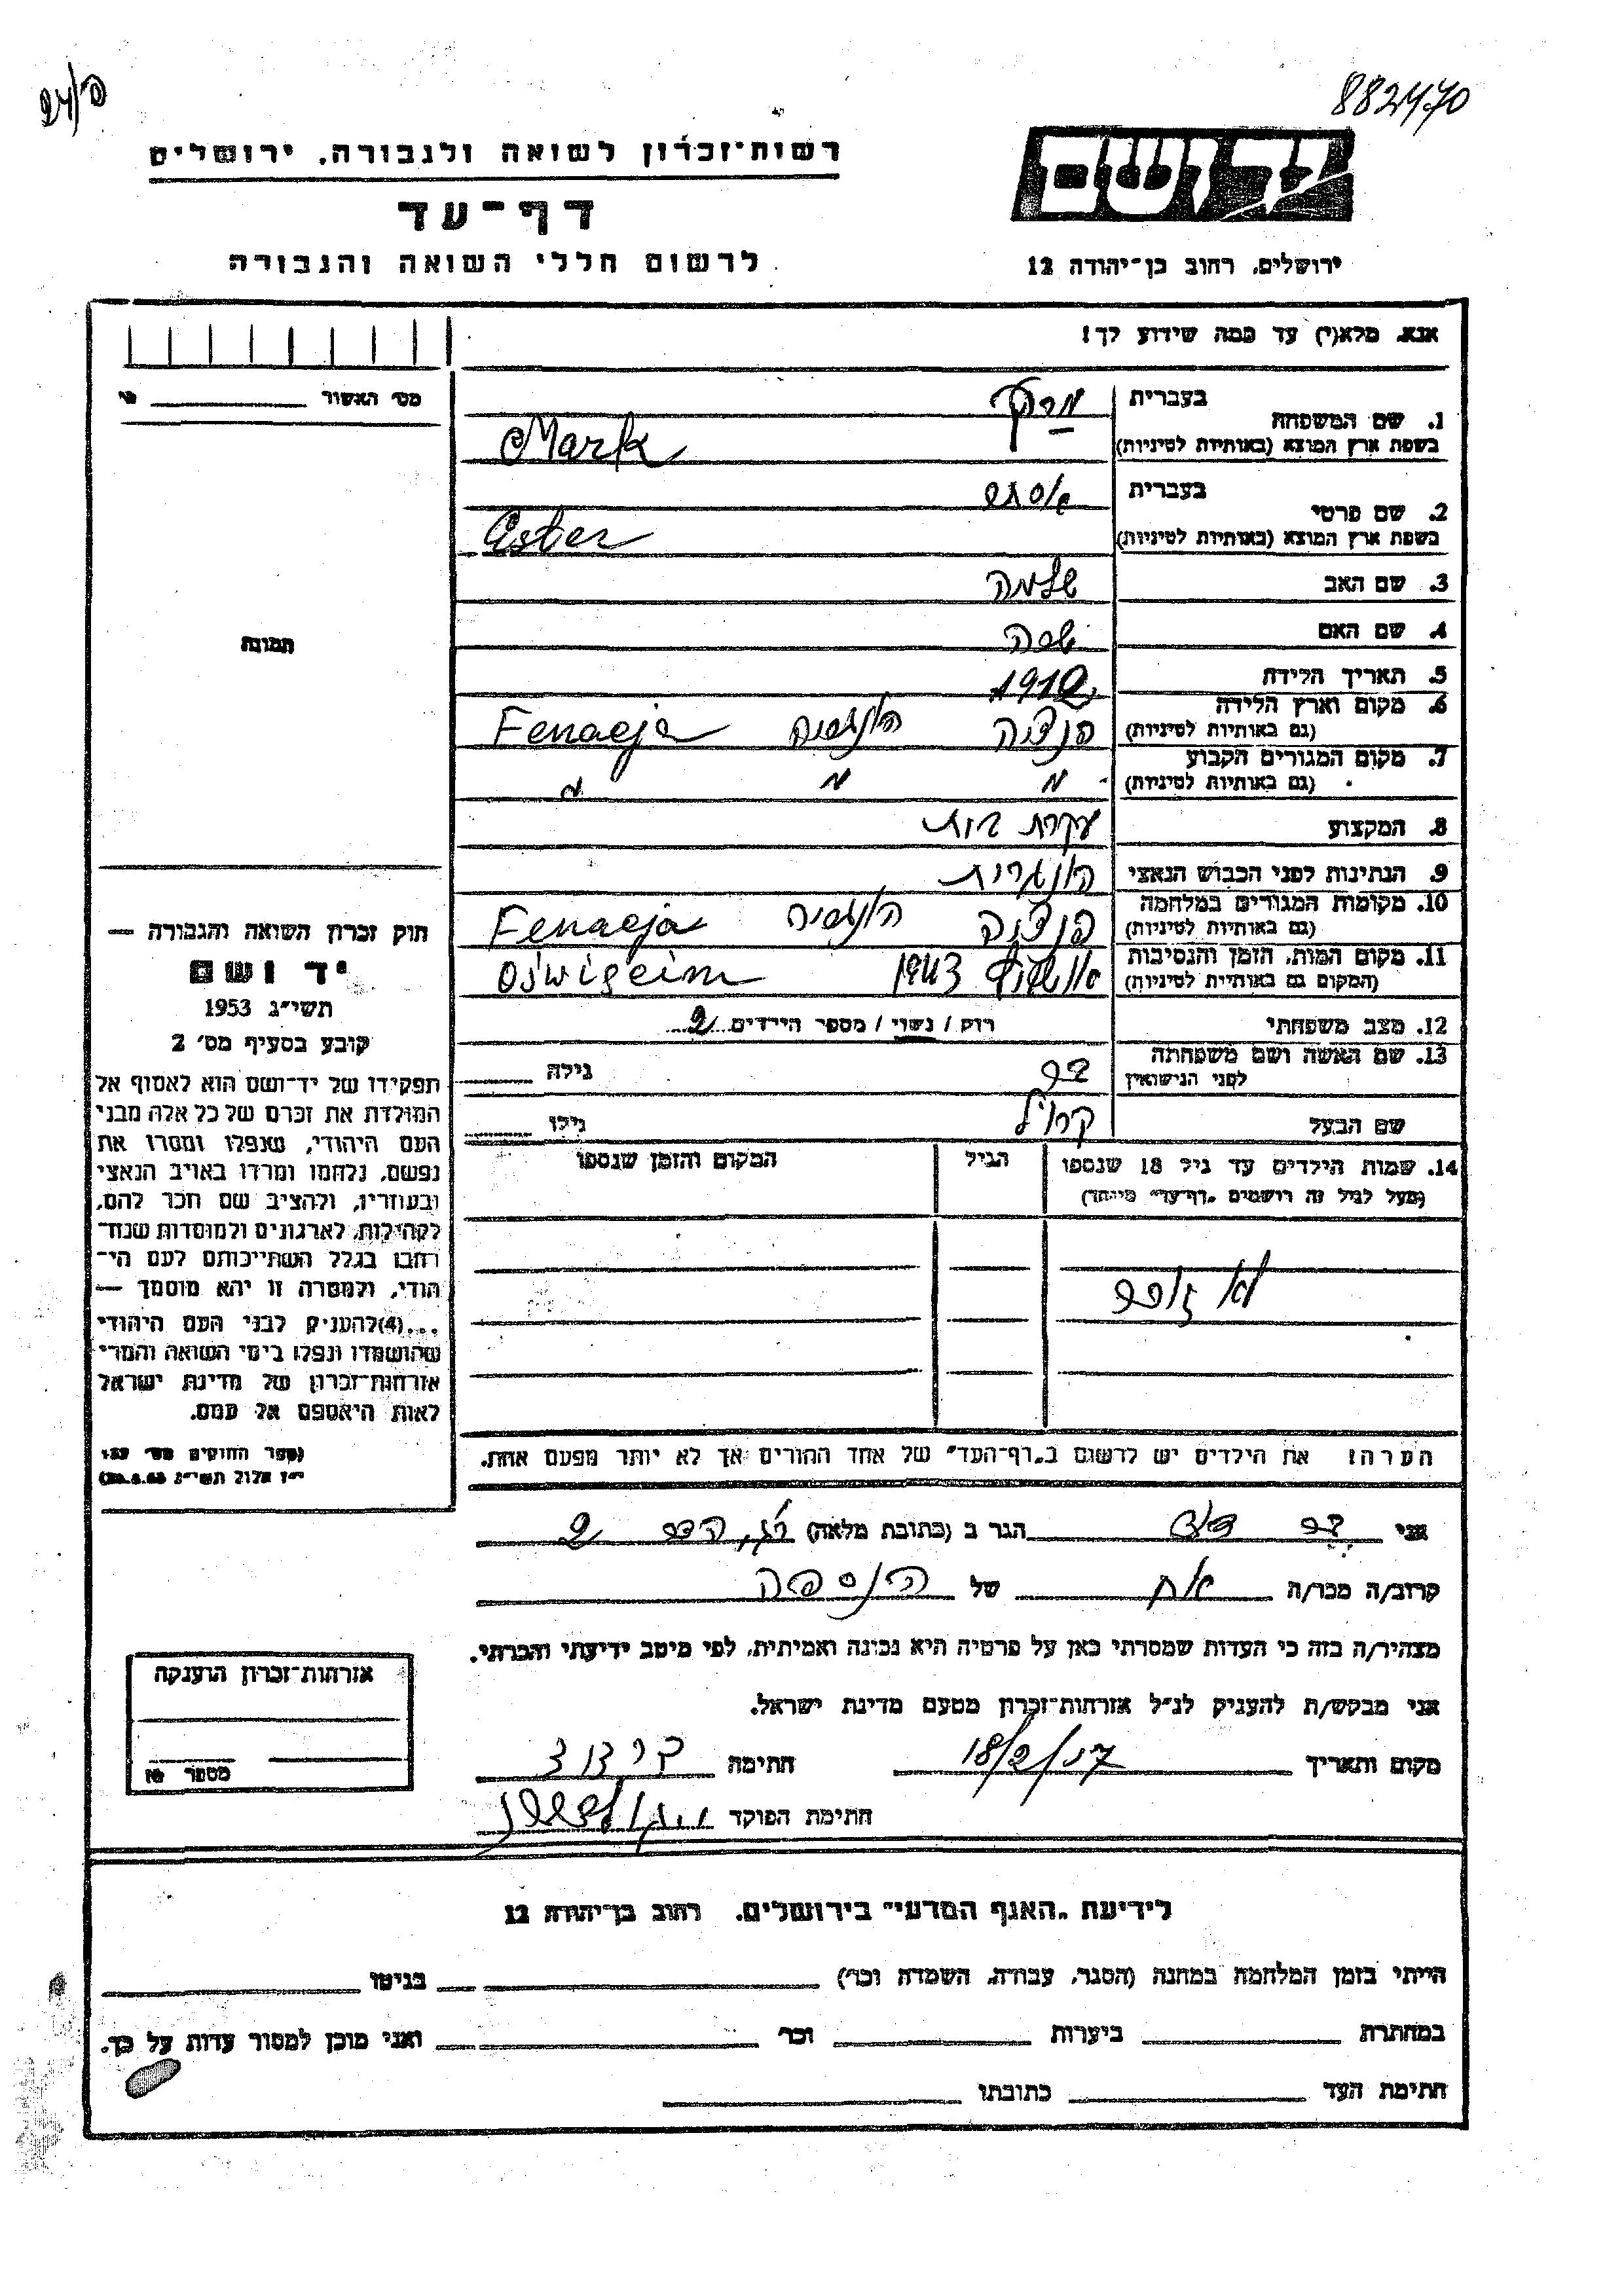 882470
רשות־זכרון לשואה ולגבורה, ירושלים
יד ושם
דף־עד
לרשום חללי השואה והגבורה
ירושלים, רחוב בן־יהודה 12
אנא, מלא(י) עד כמה שידוע לך!
מס' האשור
1. שם המשפחה
בעברית מרק
בשפת ארץ המוצא (באותיות לטיניות) Mark
2. שם פרטי
בעברית אסתר
בשפת ארץ המוצא (באותיות לטיניות) Ester
3. שם האב שלמה
4. שם האם
5. תאריך הלידה 1912
6. מקום וארץ הלידה
(גם באותיות לטיניות) הונגריה Fenaeja
7. מקום המגורים הקבוע
(גם באותיות לטיניות) " " "
8. המקצוע עקרת בית
9. הנתינות לפני הכבוש הנאצי הונגרית
10. מקומות המגורים במלחמה
(גם באותיות לטיניות) הונגריה Fenaeja
11. מקום המות, הזמן והנסיבות
(המקום גם באותיות לטיניות) 1943 Oświęcim
12. מצב משפחתי רוק / נשוי / מספר הילדים 2
13. שם האשה ושם משפחתה
לפני הנישואין גילה
שם הבעל קרויל גילו
14. שמות הילדים עד גיל 18 שנספו הגיל המקום והזמן שנספו
(מעל לגיל זה רושמים „דף־עד״ מיוחד)
לא זוכר
הערה: את הילדים יש לרשום ב„דף־העד״ של אחד ההורים אך לא יותר מפעם אחת.
תמונה
חוק זכרון השואה והגבורה —
יד ושם
תשי״ג 1953
קובע בסעיף מס' 2
תפקידו של יד־ושם הוא לאסוף אל
המולדת את זכרם של כל אלה מבני
העם היהודי, שנפלו ומסרו את
נפשם, נלחמו ומרדו באויב הנאצי
ובעוזריו, ולהציב שם וזכר להם,
לקהילות, לארגונים ולמוסדות שנח־
רבו בגלל השתייכותם לעם הי־
הודי, ולמטרה זו יהא מוסמך —
...(4)להעניק לבני העם היהודי
שהושמדו ונפלו בימי השואה והמרי
אזרחות־זכרון של מדינת ישראל
לאות היאספם אל עמם.
(ספר החוקים מס' 132
י״ז אלול תשי״ג 28.8.53)
אני הגר ב (כתובת מלאה)
קרוב/ה מכר/ה אח של הנספה
מצהיר/ה בזה כי העדות שמסרתי כאן על פרטיה היא נכונה ואמיתית, לפי מיטב ידיעתי והכרתי.
אני מבקש/ת להעניק לנ״ל אזרחות־זכרון מטעם מדינת ישראל.
מקום ותאריך 18/2/57 חתימה
חתימת הפוקד
אזרחות־זכרון הוענקה
מספר
לידיעת „האגף המדעי״ בירושלים, רחוב בן־יהודה 12
הייתי בזמן המלחמה במחנה (הסגר, עבודה, השמדה וכו') בגיטו
במחתרת ביערות וכו' ואני מוכן למסור עדות על כך.
חתימת העד כתובתו